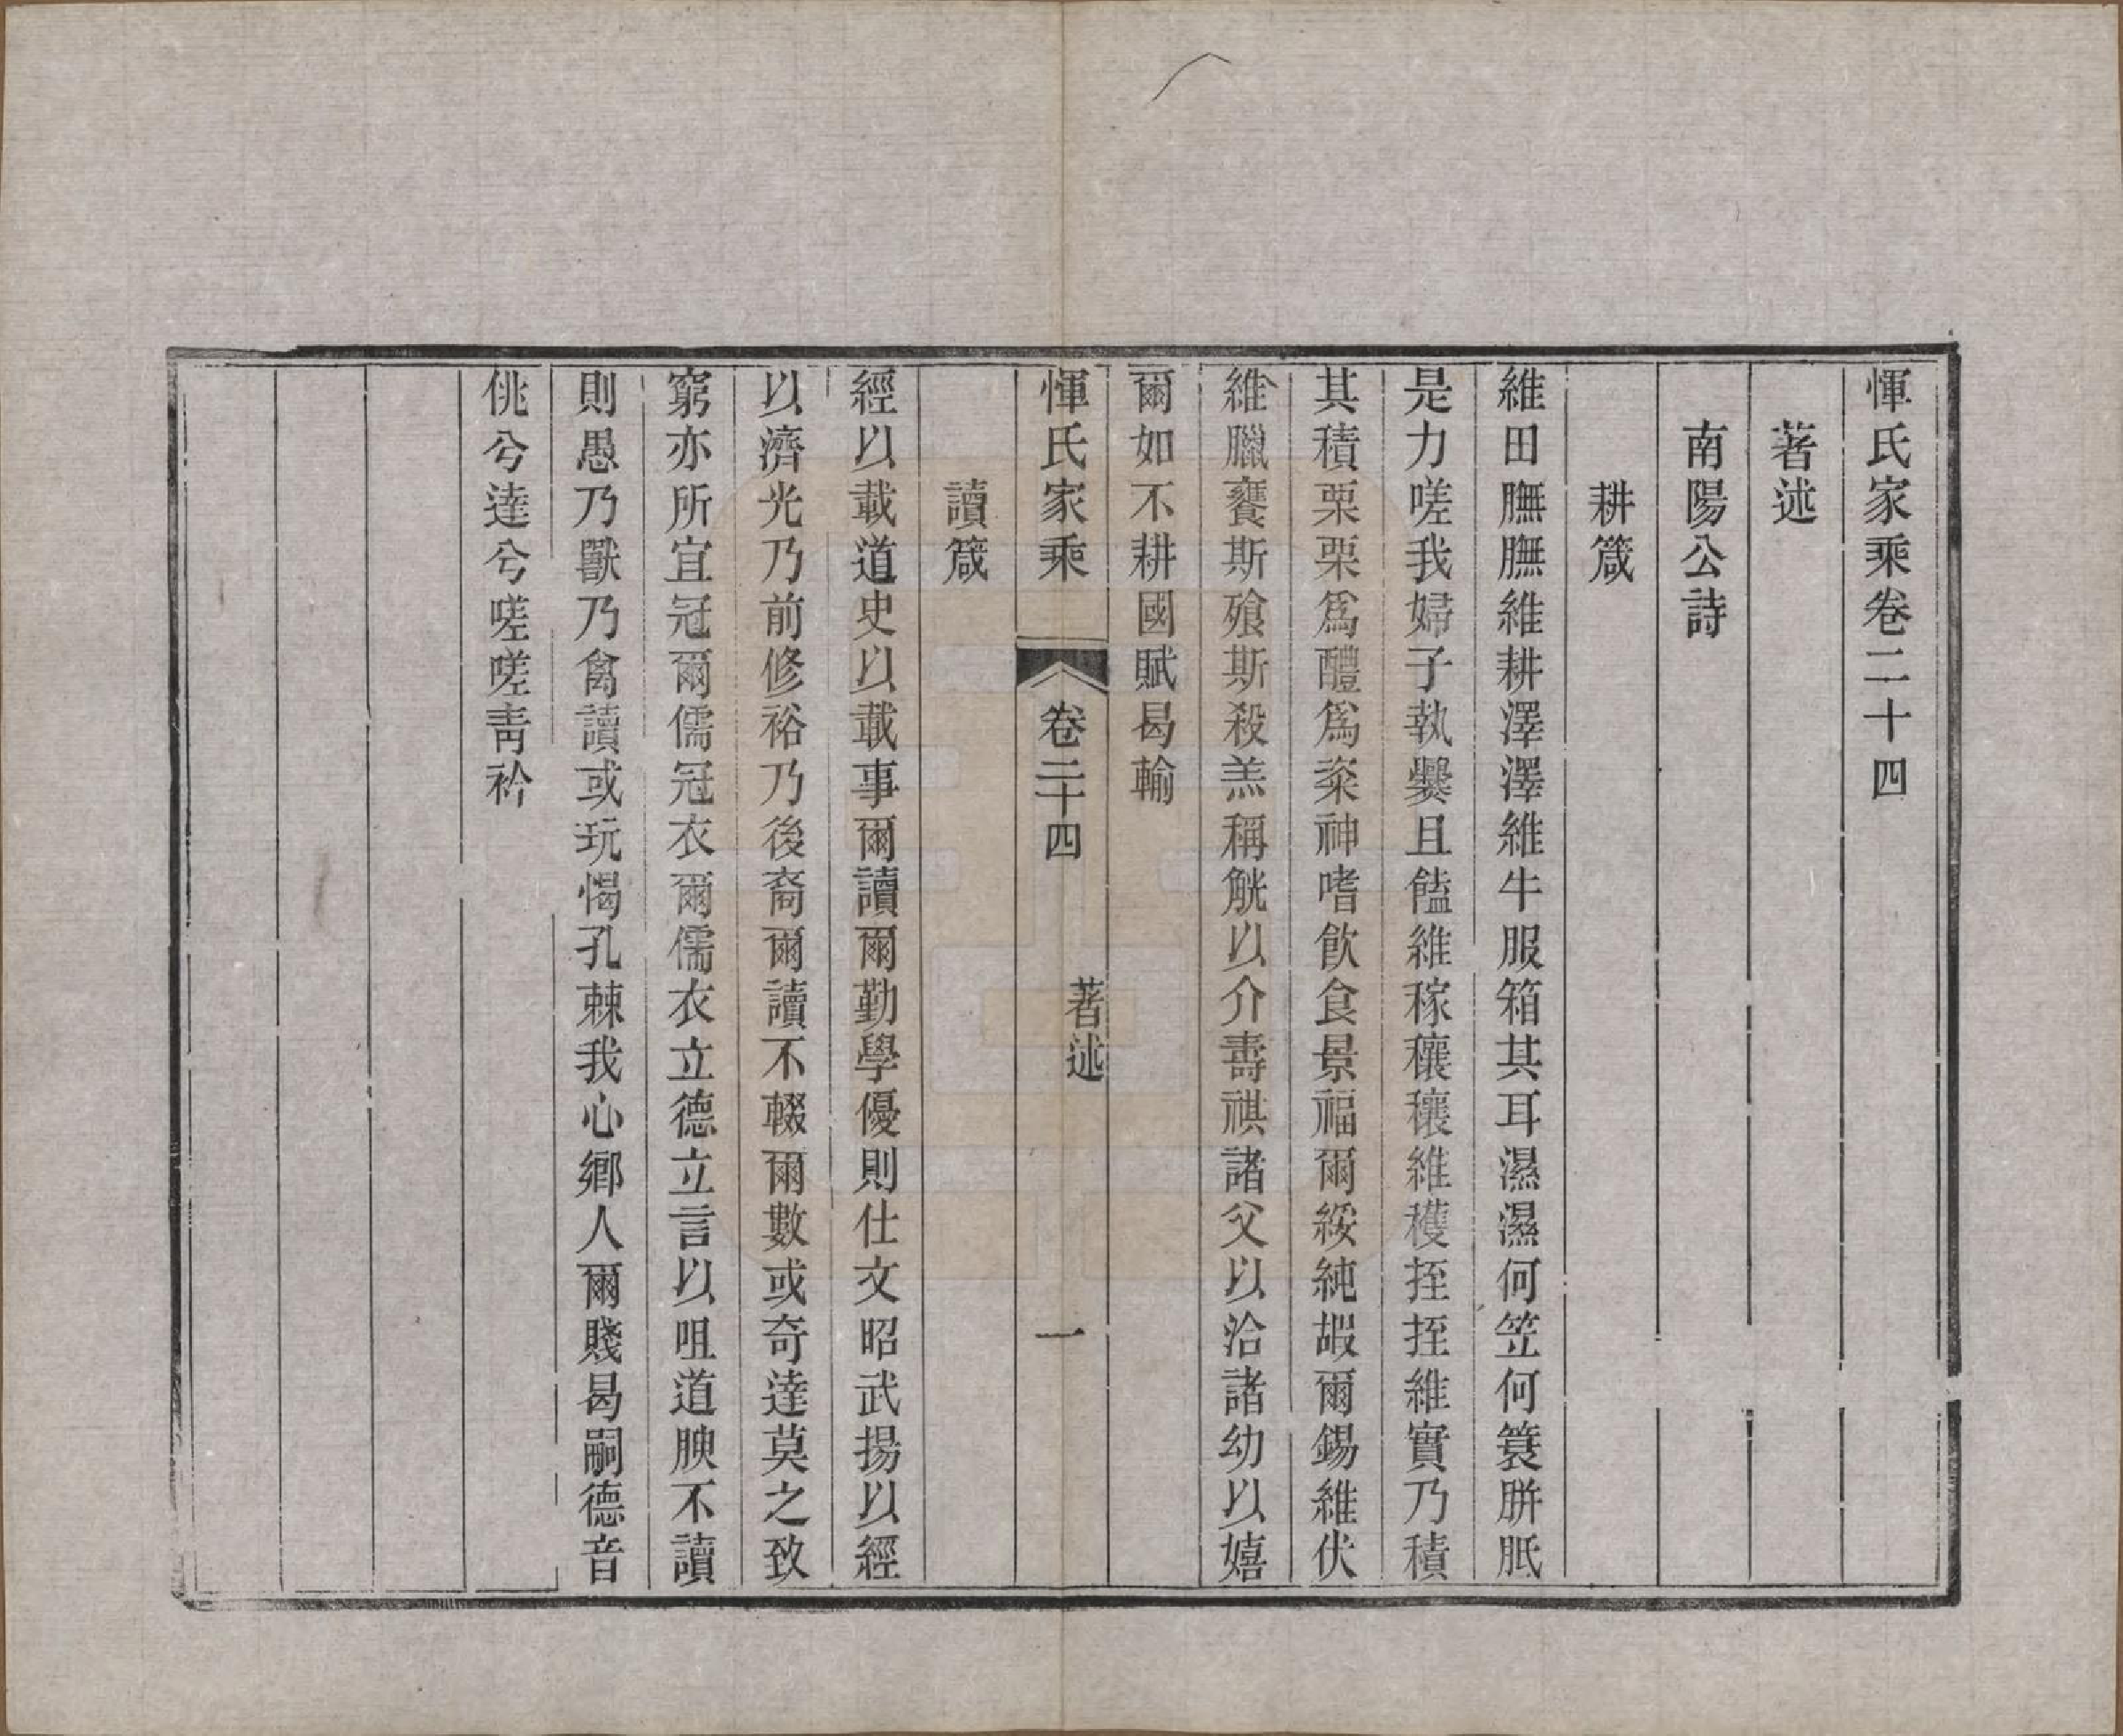 惲氏家乘卷二十四
著述
南陽公詩
耕箴
維田膴膴維耕澤澤維牛服箱其耳濕濕何笠何簑胼胝
是力嗟我婦子執爨且饁維稼穰穰維穫挃挃維實乃積
其積栗栗爲醴爲粢神嗜飲食景福爾綏純嘏爾錫維伏
維臘饔斯飱斯殺羔稱觥以介壽祺諸父以洽諸幼以嬉
爾如不耕國賦曷輸
惲氏家乘 卷二十四 著述 一
讀箴
經以載道史以載事爾讀爾勤學優則仕文昭武揚以經
以濟光乃前修裕乃後裔爾讀不輟爾數或奇達莫之致
窮亦所宜冠爾儒冠衣爾儒衣立德立言以咀道腴不讀
則愚乃獸乃禽讀或玩愒孔棘我心鄉人爾賤曷嗣德音
佻兮達兮嗟嗟靑衿